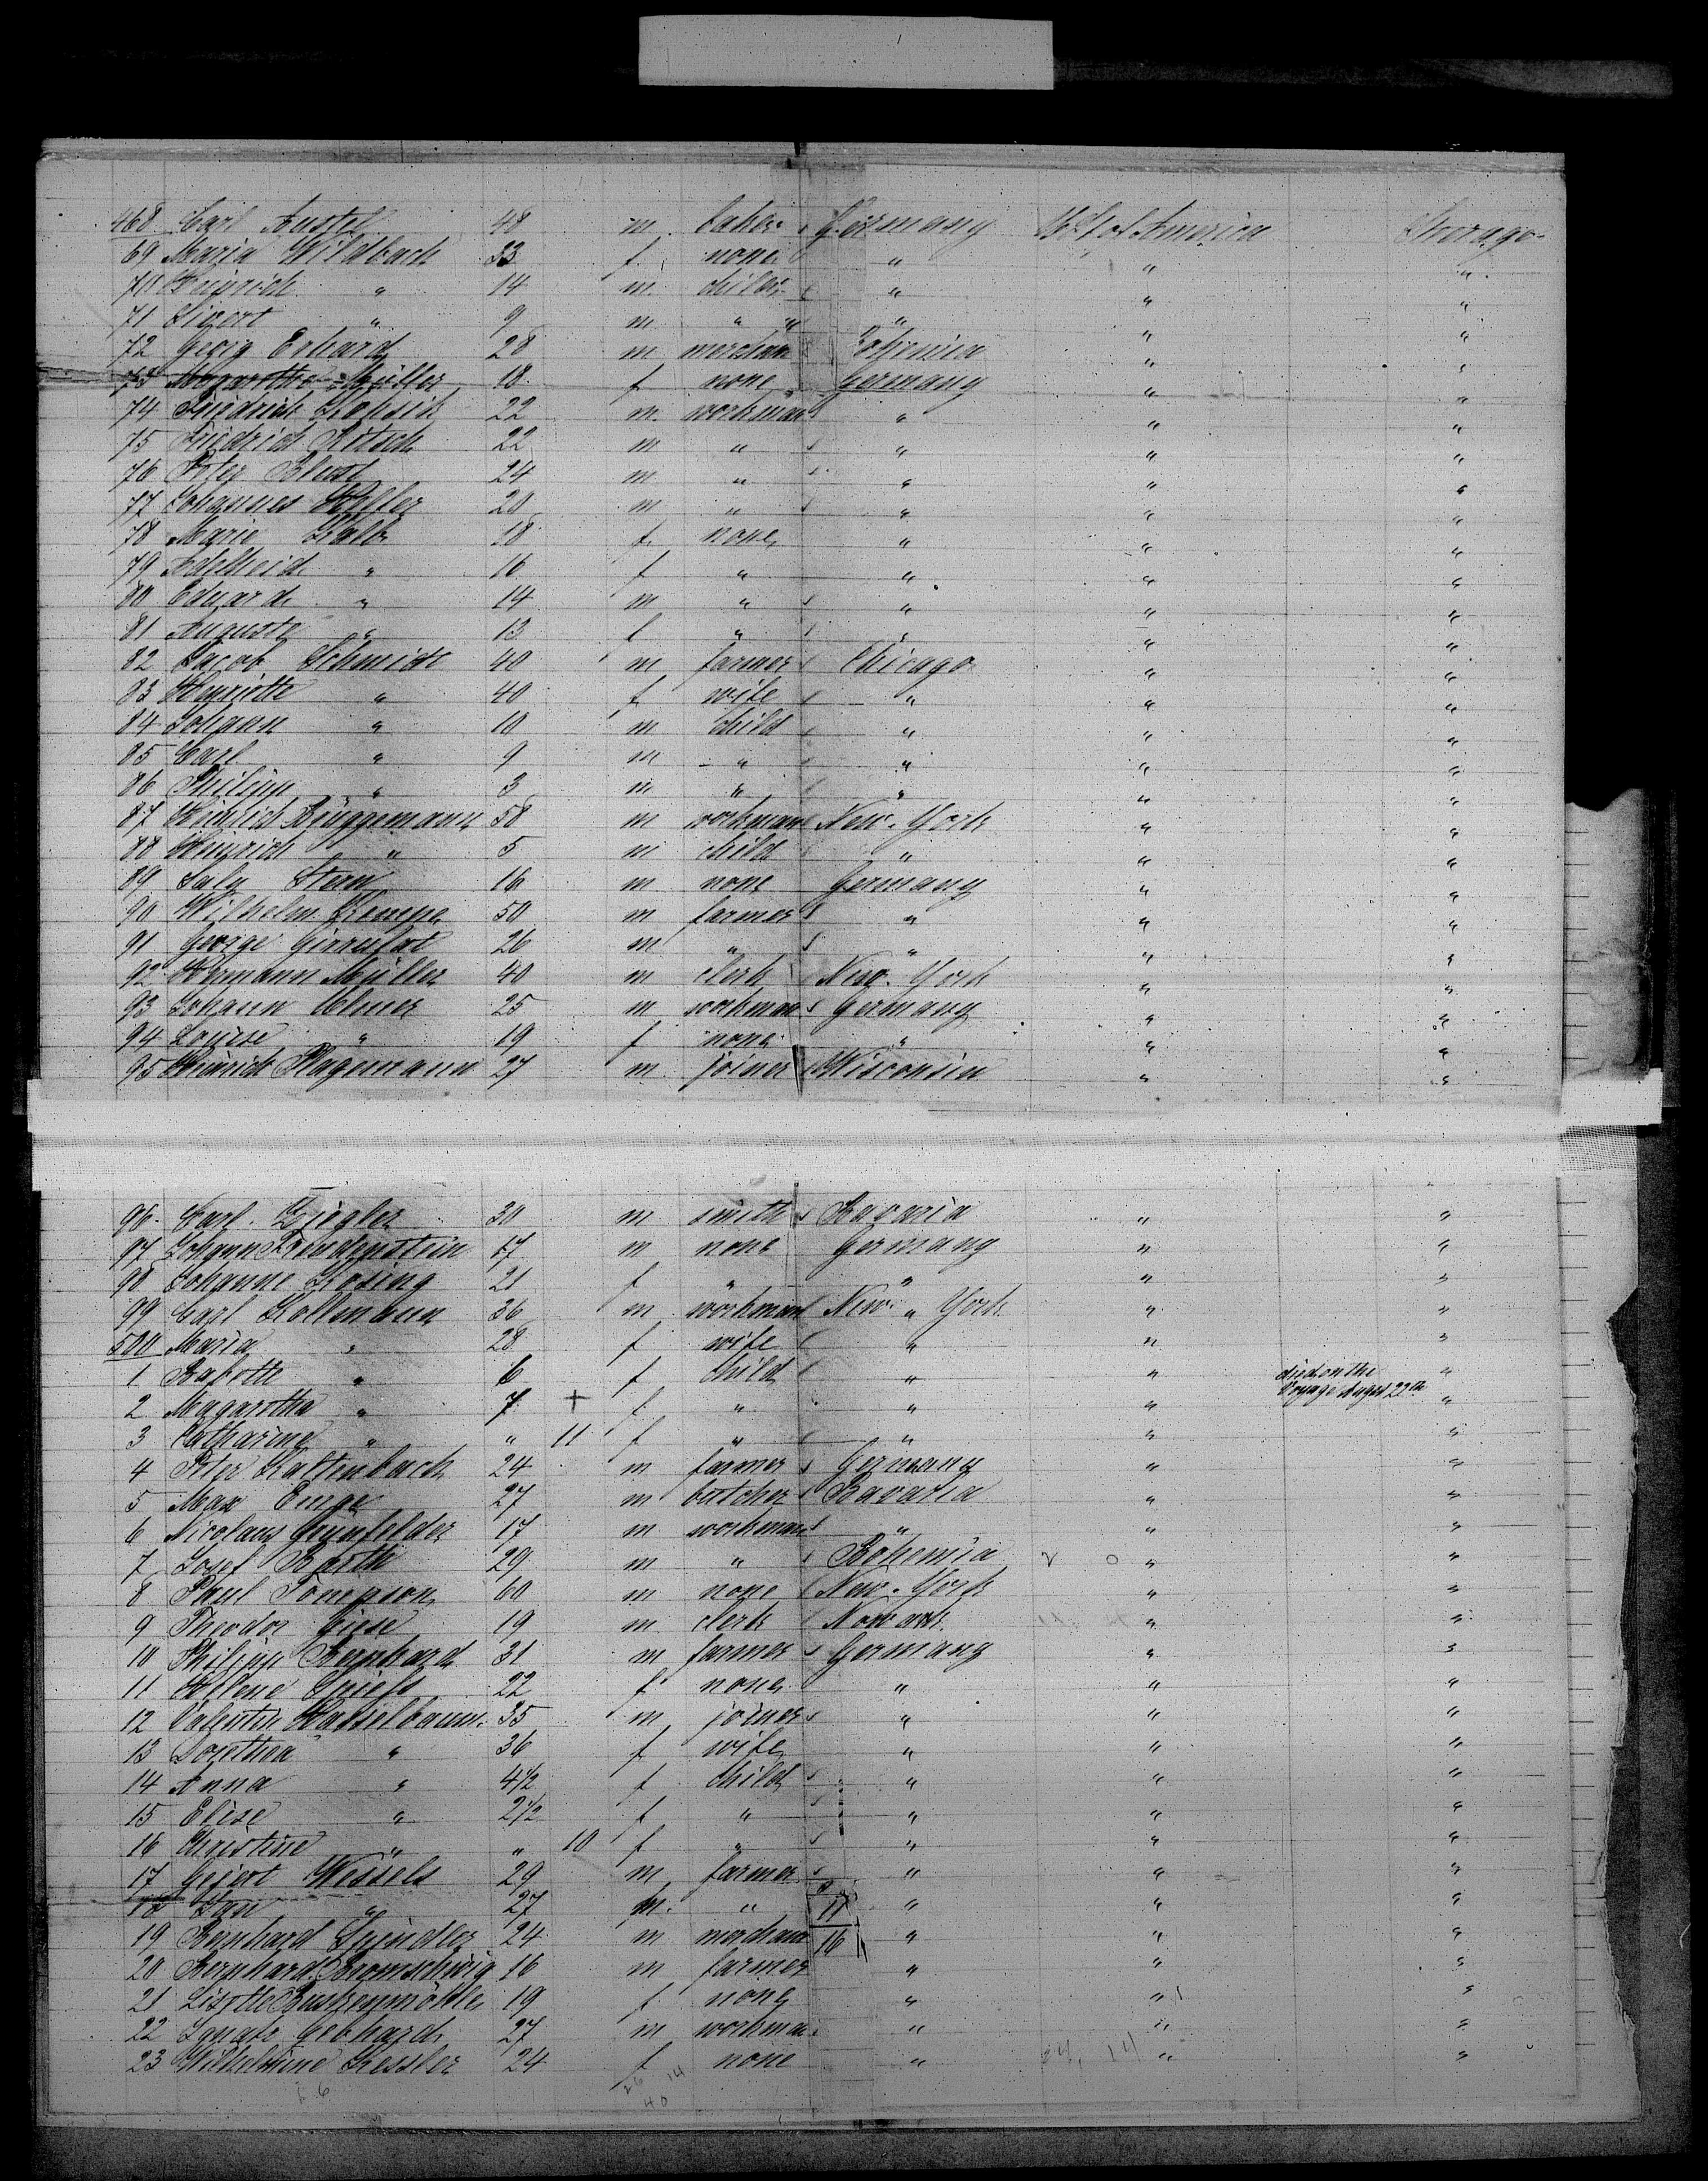 468 Carl Austel 48 m baker Germany U. S. of America Steerage
69 Maria Wildbach 33 f none " " "
70 Heinrich " 14 m child " " "
71 Sivert " 9 m " " " "
72 Georg Erhard 28 m merchan Bohemia " "
73 Margarethe Müller 18 f none Germany " "
74 Friedrich 22 m workman " " "
75 Friedrich Ritsch 22 m " " " "
76 Peter Blust 24 m " " " "
77 Johannes 20 m " " " "
78 Marie Kalb 18 f none " " "
79 Adelheid " 16 f " " " "
80 Eduard " 14 m " " " "
81 Auguste " 13 f " " " "
82 Jacob Schmidt 40 m farmer Chicago " "
83 Henriette " 40 f wife " " "
84 Johann " 10 m child " " "
85 Carl " 9 m " " " "
86 Philipp " 3 m " " " "
87 Heinrich Brüggemann 58 m workman New-York " "
88 Heinrich " 5 m child " " "
89 Saly Stern 16 m none Germany " "
90 Wilhelm Krempe 50 m farmer " " "
91 George 26 m " " " "
92 Hermann Müller 40 m clerk New-York " "
93 Johann Ulmer 25 m workman Germany " "
94 Louise " 19 f none " " "
95 Heinrich Hagemann 27 m joiner Wisconsin " "
96 Carl Ziegler 30 m smith Bavaria " "
97 Johann Freudenstein 17 m none Germany " "
98 Johanne Kosing 21 f " " " "
99 Carl Kollmann 36 m workman New " York " "
500 Maria " 28 f wife " " "
1 Babette " 6 f child " " "
2 Magaretha " 7 + f " " " died on the Voyage Augst 22th "
3 Catharine " " 11 f " " " "
4 Peter Kaltenbach 24 m farmer Germany " "
5 Max Enge 27 m butcher Bavaria " "
6 Nicolaus Grünfelder 17 m workman " " "
7 Josef Barth 29 m " Bohemia " "
8 Paul Tompson 60 m none New-York " "
9 Theodor Giese 19 m clerk Newark " "
10 Philipp Bernhard 31 m farmer Germany " "
11 Helene 22 f none " " "
12 Valentin Hasselbaum 35 m joiner " " "
13 Dorethea " 36 f wife " " "
14 Anna " 4½ f child " " "
15 Elise " 2½ f " " " "
16 Christine " " 10 f " " " "
17 Gejert Wessels 29 m farmer " " "
18 Jan " 27 m " 17 " " "
19 Bernhard Spindler 24 m merchan 16 " " "
20 Bernhard Bromschwig 16 m farmer " " "
21 Lisette 19 f none " " "
22 Ignatz Gebhard 27 m workman " " "
23 Wilhelmine Kessler 24 f none " " "
26 14
40